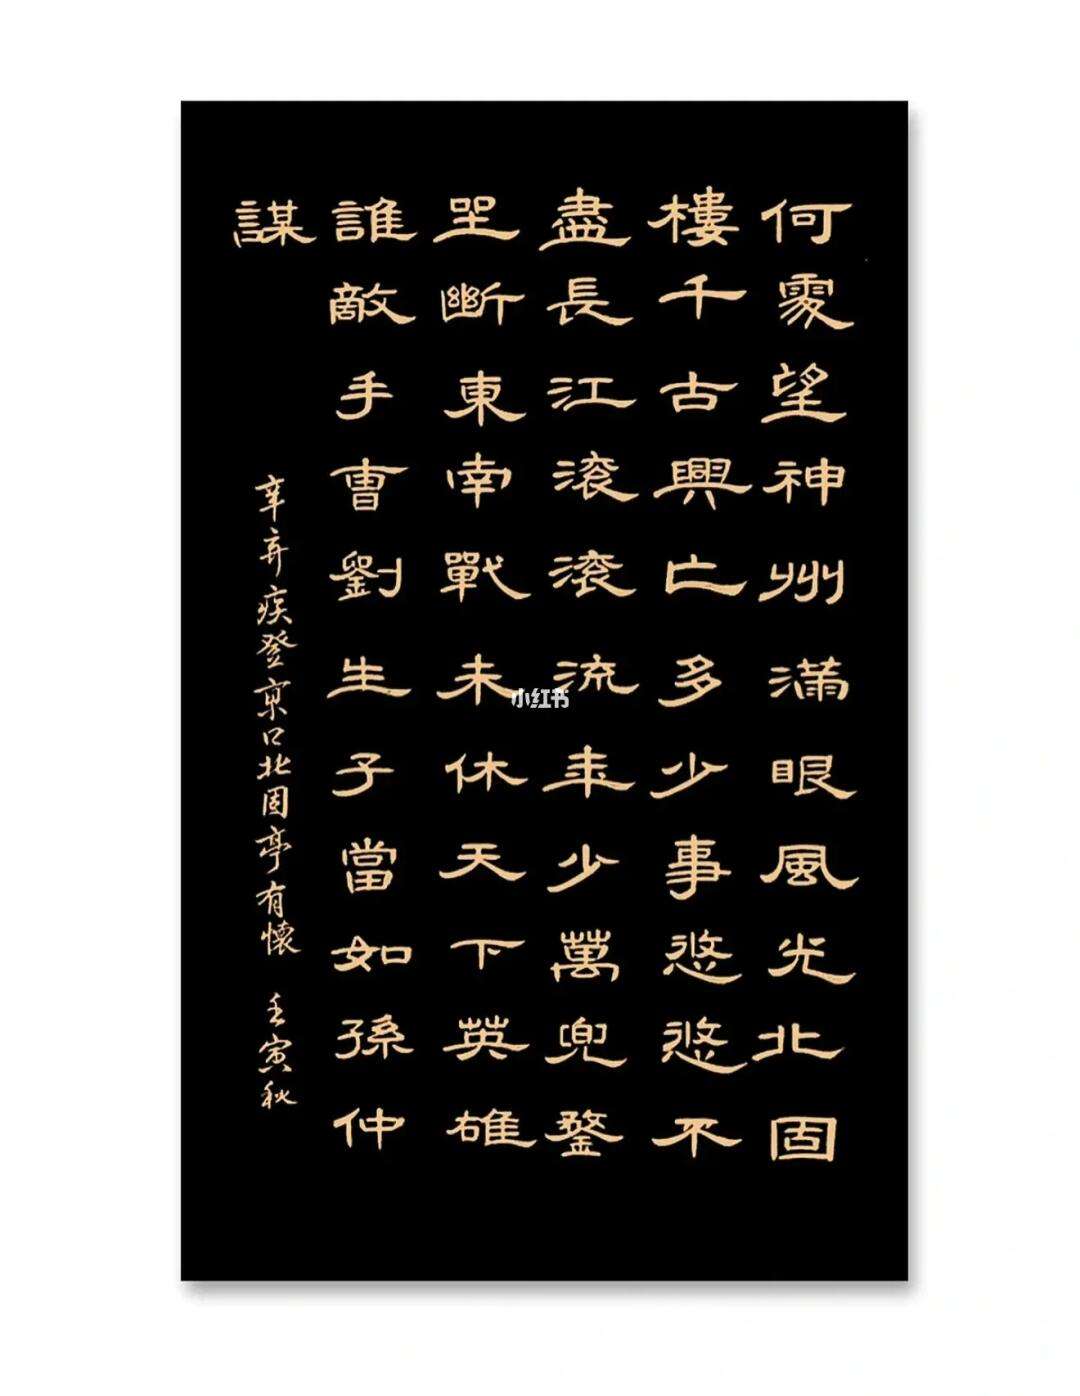 何處望神州滿眼風光北固
樓千古興亡多少事悠悠不
盡長江滾滾流年少萬兜鍪
坐斷東南戰未休天下英雄
誰敵手曹劉生子當如孫仲
謀
辛弃疾登京口北固亭有懷 壬寅秋
小红书